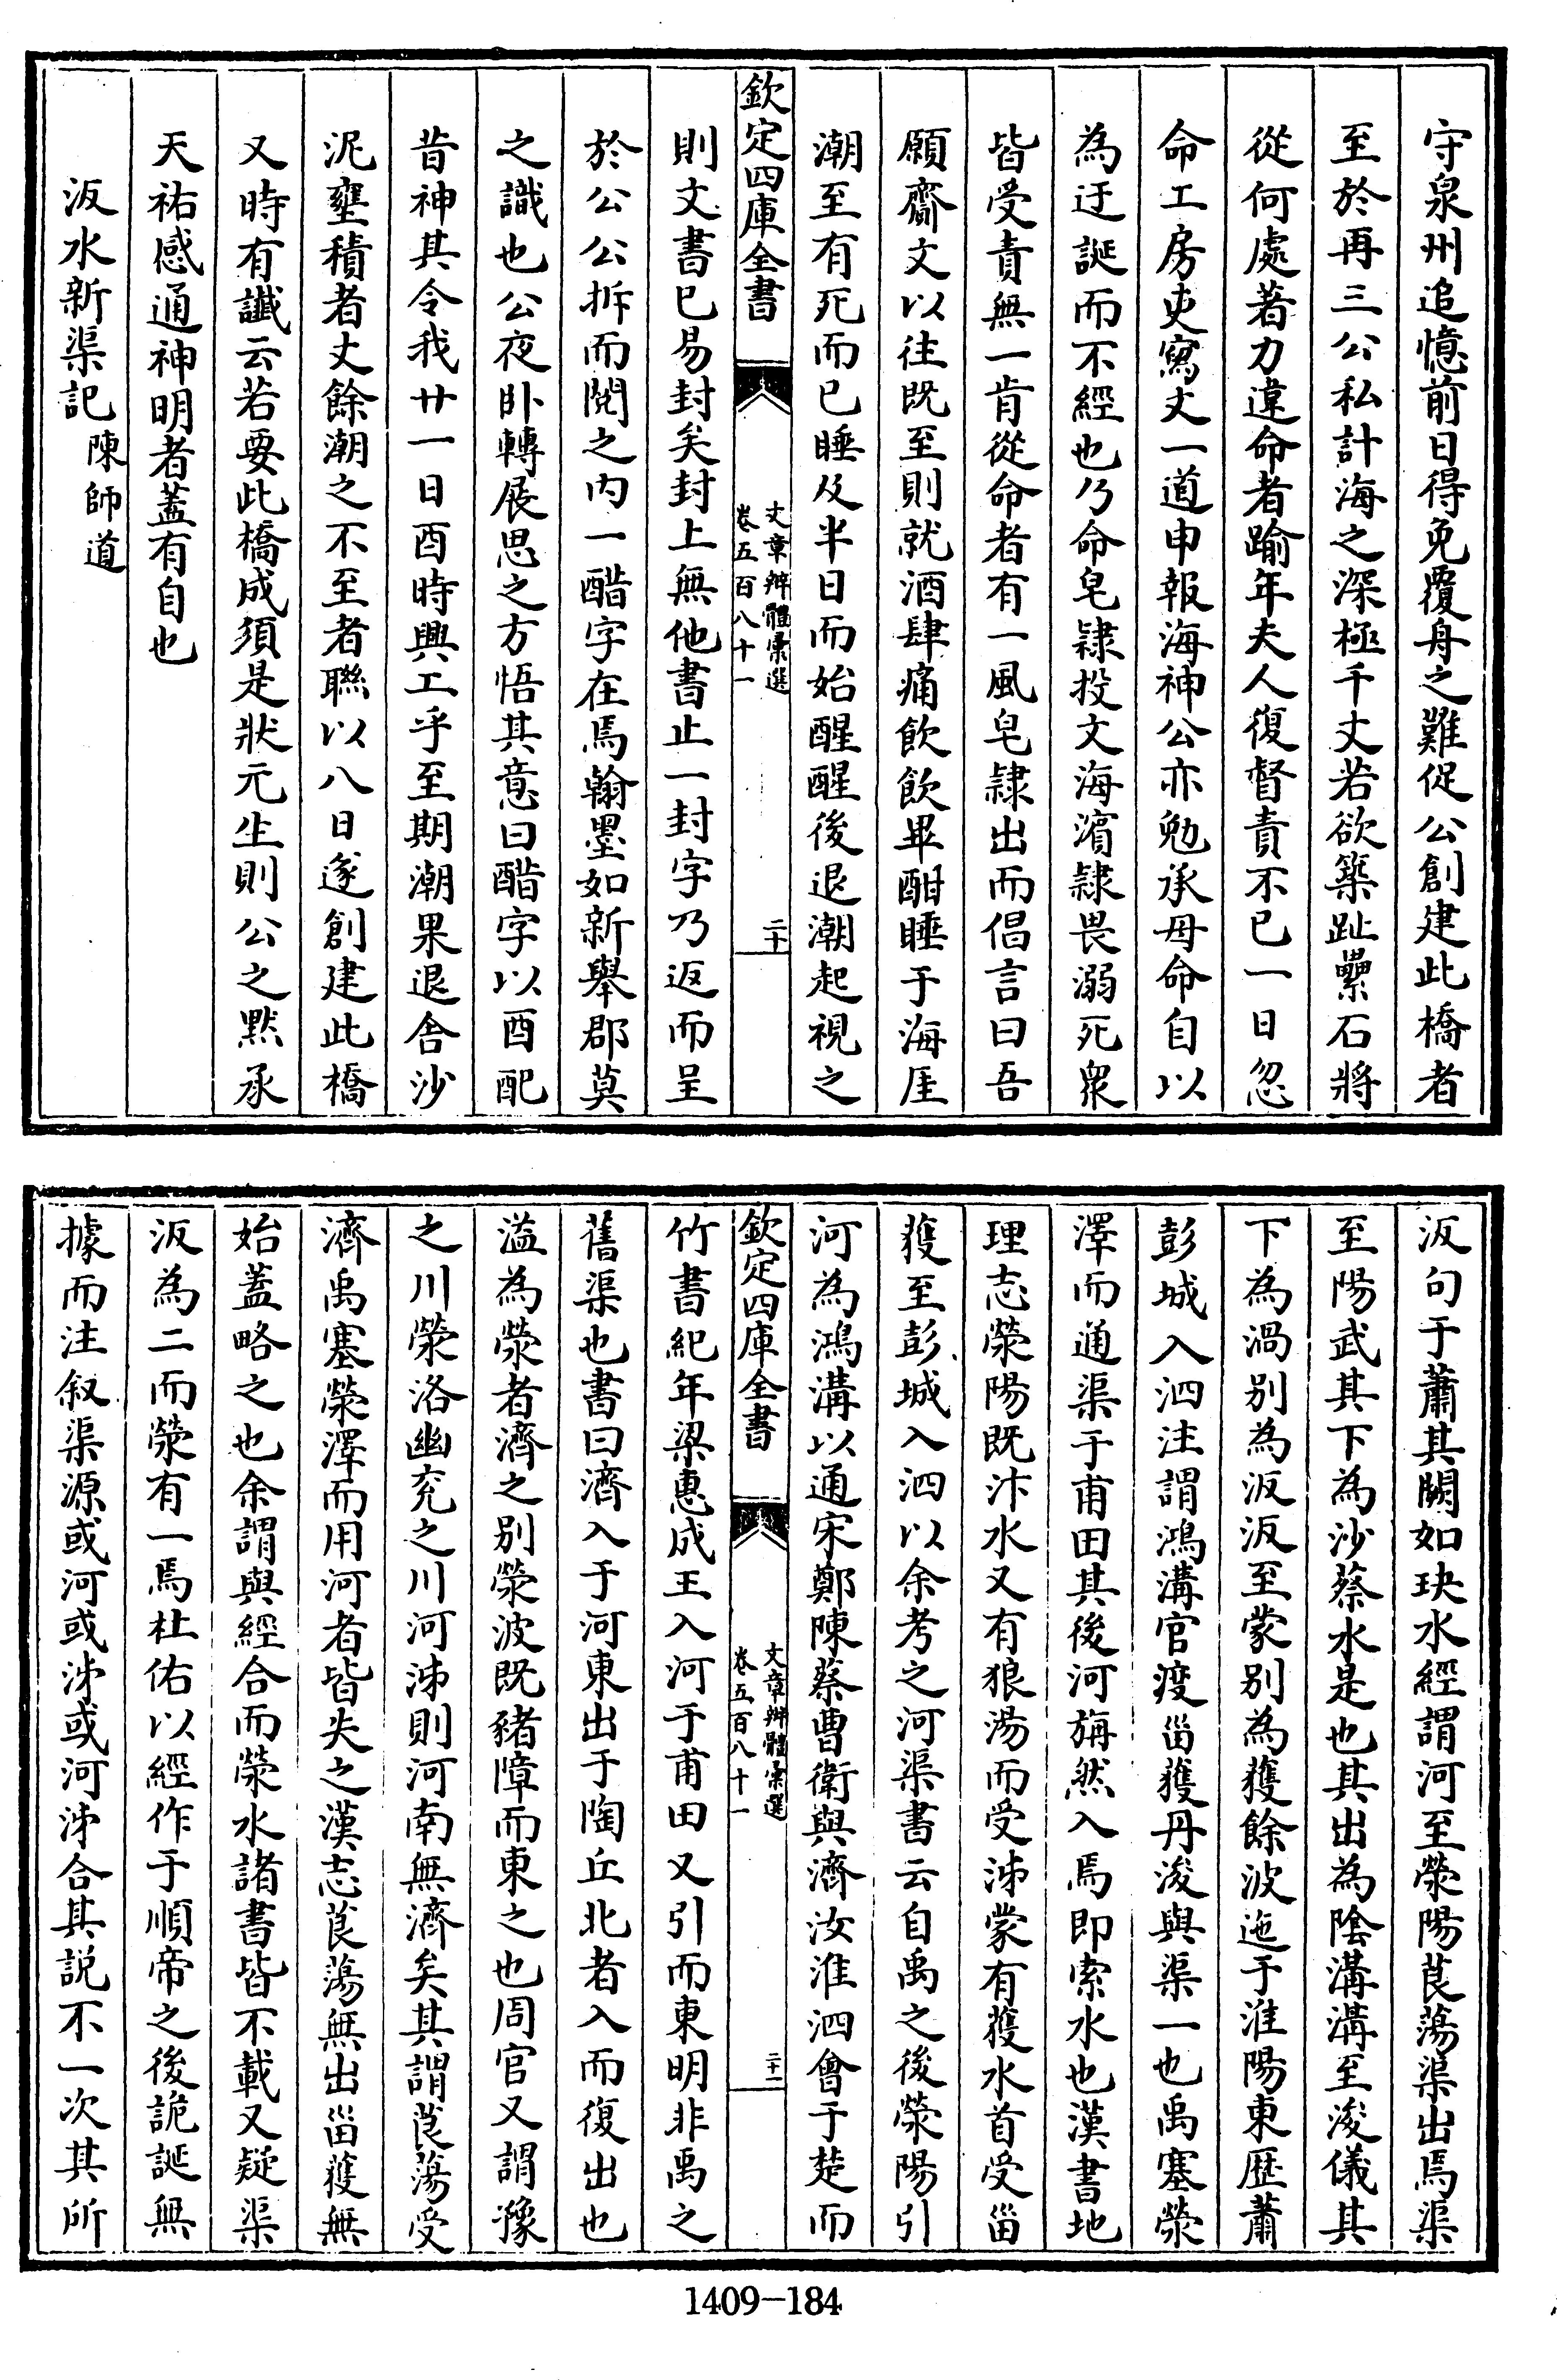 守泉州追憶前日得免覆舟之難促公創建此橋者
至於再三公私計海之深極千丈若欲築趾壘石將
從何處著力違命者踰年夫人復督責不已一日忽
命工房吏寫文一道申報海神公亦勉承母命自以
為迂誕而不經也乃命皂隸投文海濱隸畏溺死衆
皆受責無一肯從命者有一風皂隸出而倡言曰吾
願齎文以往既至則就酒肆痛飲飲畢酣睡于海厓
潮至有死而已睡及半日而始醒醒後退潮起視之
欽定四庫全書
文章辨體彙選
卷五百八十一
二十
則文書已易封矣封上無他書止一封字乃返而呈
於公公拆而閱之内一醋字在焉翰墨如新舉郡莫
之識也公夜卧轉展思之方悟其意曰醋字以酉配
昔神其令我廿一日酉時興工乎至期潮果退舍沙
泥壅積者丈餘潮之不至者聯以八日遂創建此橋
又時有讖云若要此橋成須是狀元生則公之黙承
天祐感通神明者蓋有自也
汳水新渠記 陳師道
汳句于蕭其闕如玦水經謂河至滎陽莨蕩渠出焉渠
至陽武其下為沙蔡水是也其出為陰溝溝至浚儀其
下為渦别為汳汳至蒙别為獲餘波迤于淮陽東歷蕭
彭城入泗注謂鴻溝官渡甾獲丹浚與渠一也禹塞滎
澤而通渠于甫田其後河旃然入焉即索水也漢書地
理志滎陽既汴水又有狼湯而受泲蒙有獲水首受甾
獲至彭城入泗以余考之河渠書云自禹之後滎陽引
河為鴻溝以通宋鄭陳蔡曹衛與濟汝淮泗會于楚而
欽定四庫全書
文章辨體彙選
卷五百八十一
二十一
竹書紀年梁惠成王入河于甫田又引而東明非禹之
舊渠也書曰濟入于河東出于陶丘北者入而復出也
溢為滎者濟之别滎波既豬障而東之也周官又謂豫
之川滎洛幽兖之川河泲則河南無濟矣其謂莨蕩受
濟禹塞滎澤而用河者皆失之漢志莨蕩無出甾獲無
始蓋略之也余謂與經合而滎水諸書皆不載又疑渠
汳為二而滎有一焉杜佑以經作于順帝之後詭誕無
據而注叙渠源或河或泲或河泲合其説不一次其所
1409-184